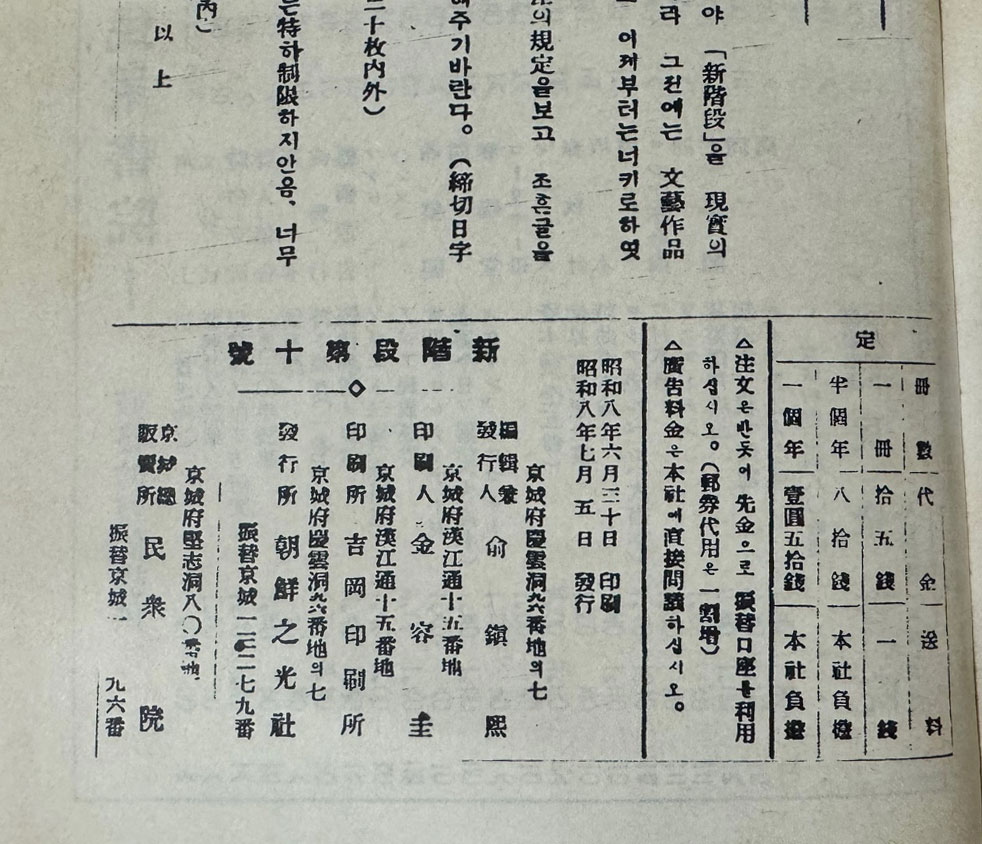 야 「新階段」을 現實의
라 그전에는 文藝作品
이제부터는너키로하엿
의規定을보고 조흔글을
해주기바란다。(締切日字
二十枚內外)
는特하制限하지안음、너무
內)
以上
定
冊數 代金 送料
一冊 拾五錢 一錢
半個年 八拾錢 本社負擔
一個年 壹圓五拾錢 本社負擔
△注文은반듯이 先金으로 振替口座를利用
하십시오。(郵券代用은 一割增)
△廣告料金은本社에直接問議하십시오。
昭和八年六月三十日 印刷
昭和八年七月五日 發行
新階段第十號
京城府慶雲洞九六番地의七
編輯兼發行人 俞鎭熙
京城府漢江通十五番地
印刷人 金容圭
京城府漢江通十五番地
印刷所 吉岡印刷所
京城府慶雲洞九六番地의七
發行所 朝鮮之光社
振替京城一三二七九番
京城府堅志洞八〇番地
京城總販賣所 民衆院
振替京城一九六番